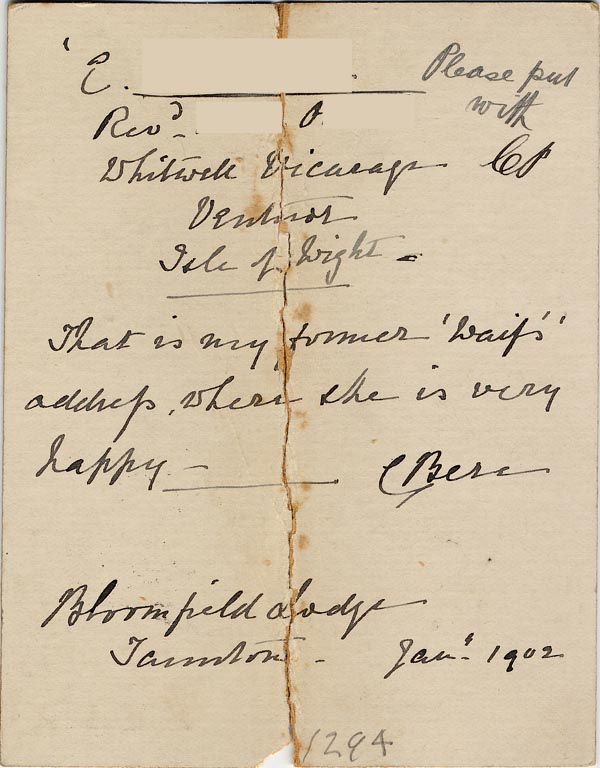 'C.
Please put
with
CP
Revd. O.
Whitwell Vicarage
Ventnor
Isle of Wight -
That is my former 'Waif's'
addreſs, where she is very
happy -
C Bere
Bloomfield Lodge
Taunton - Jany. 1902
1294